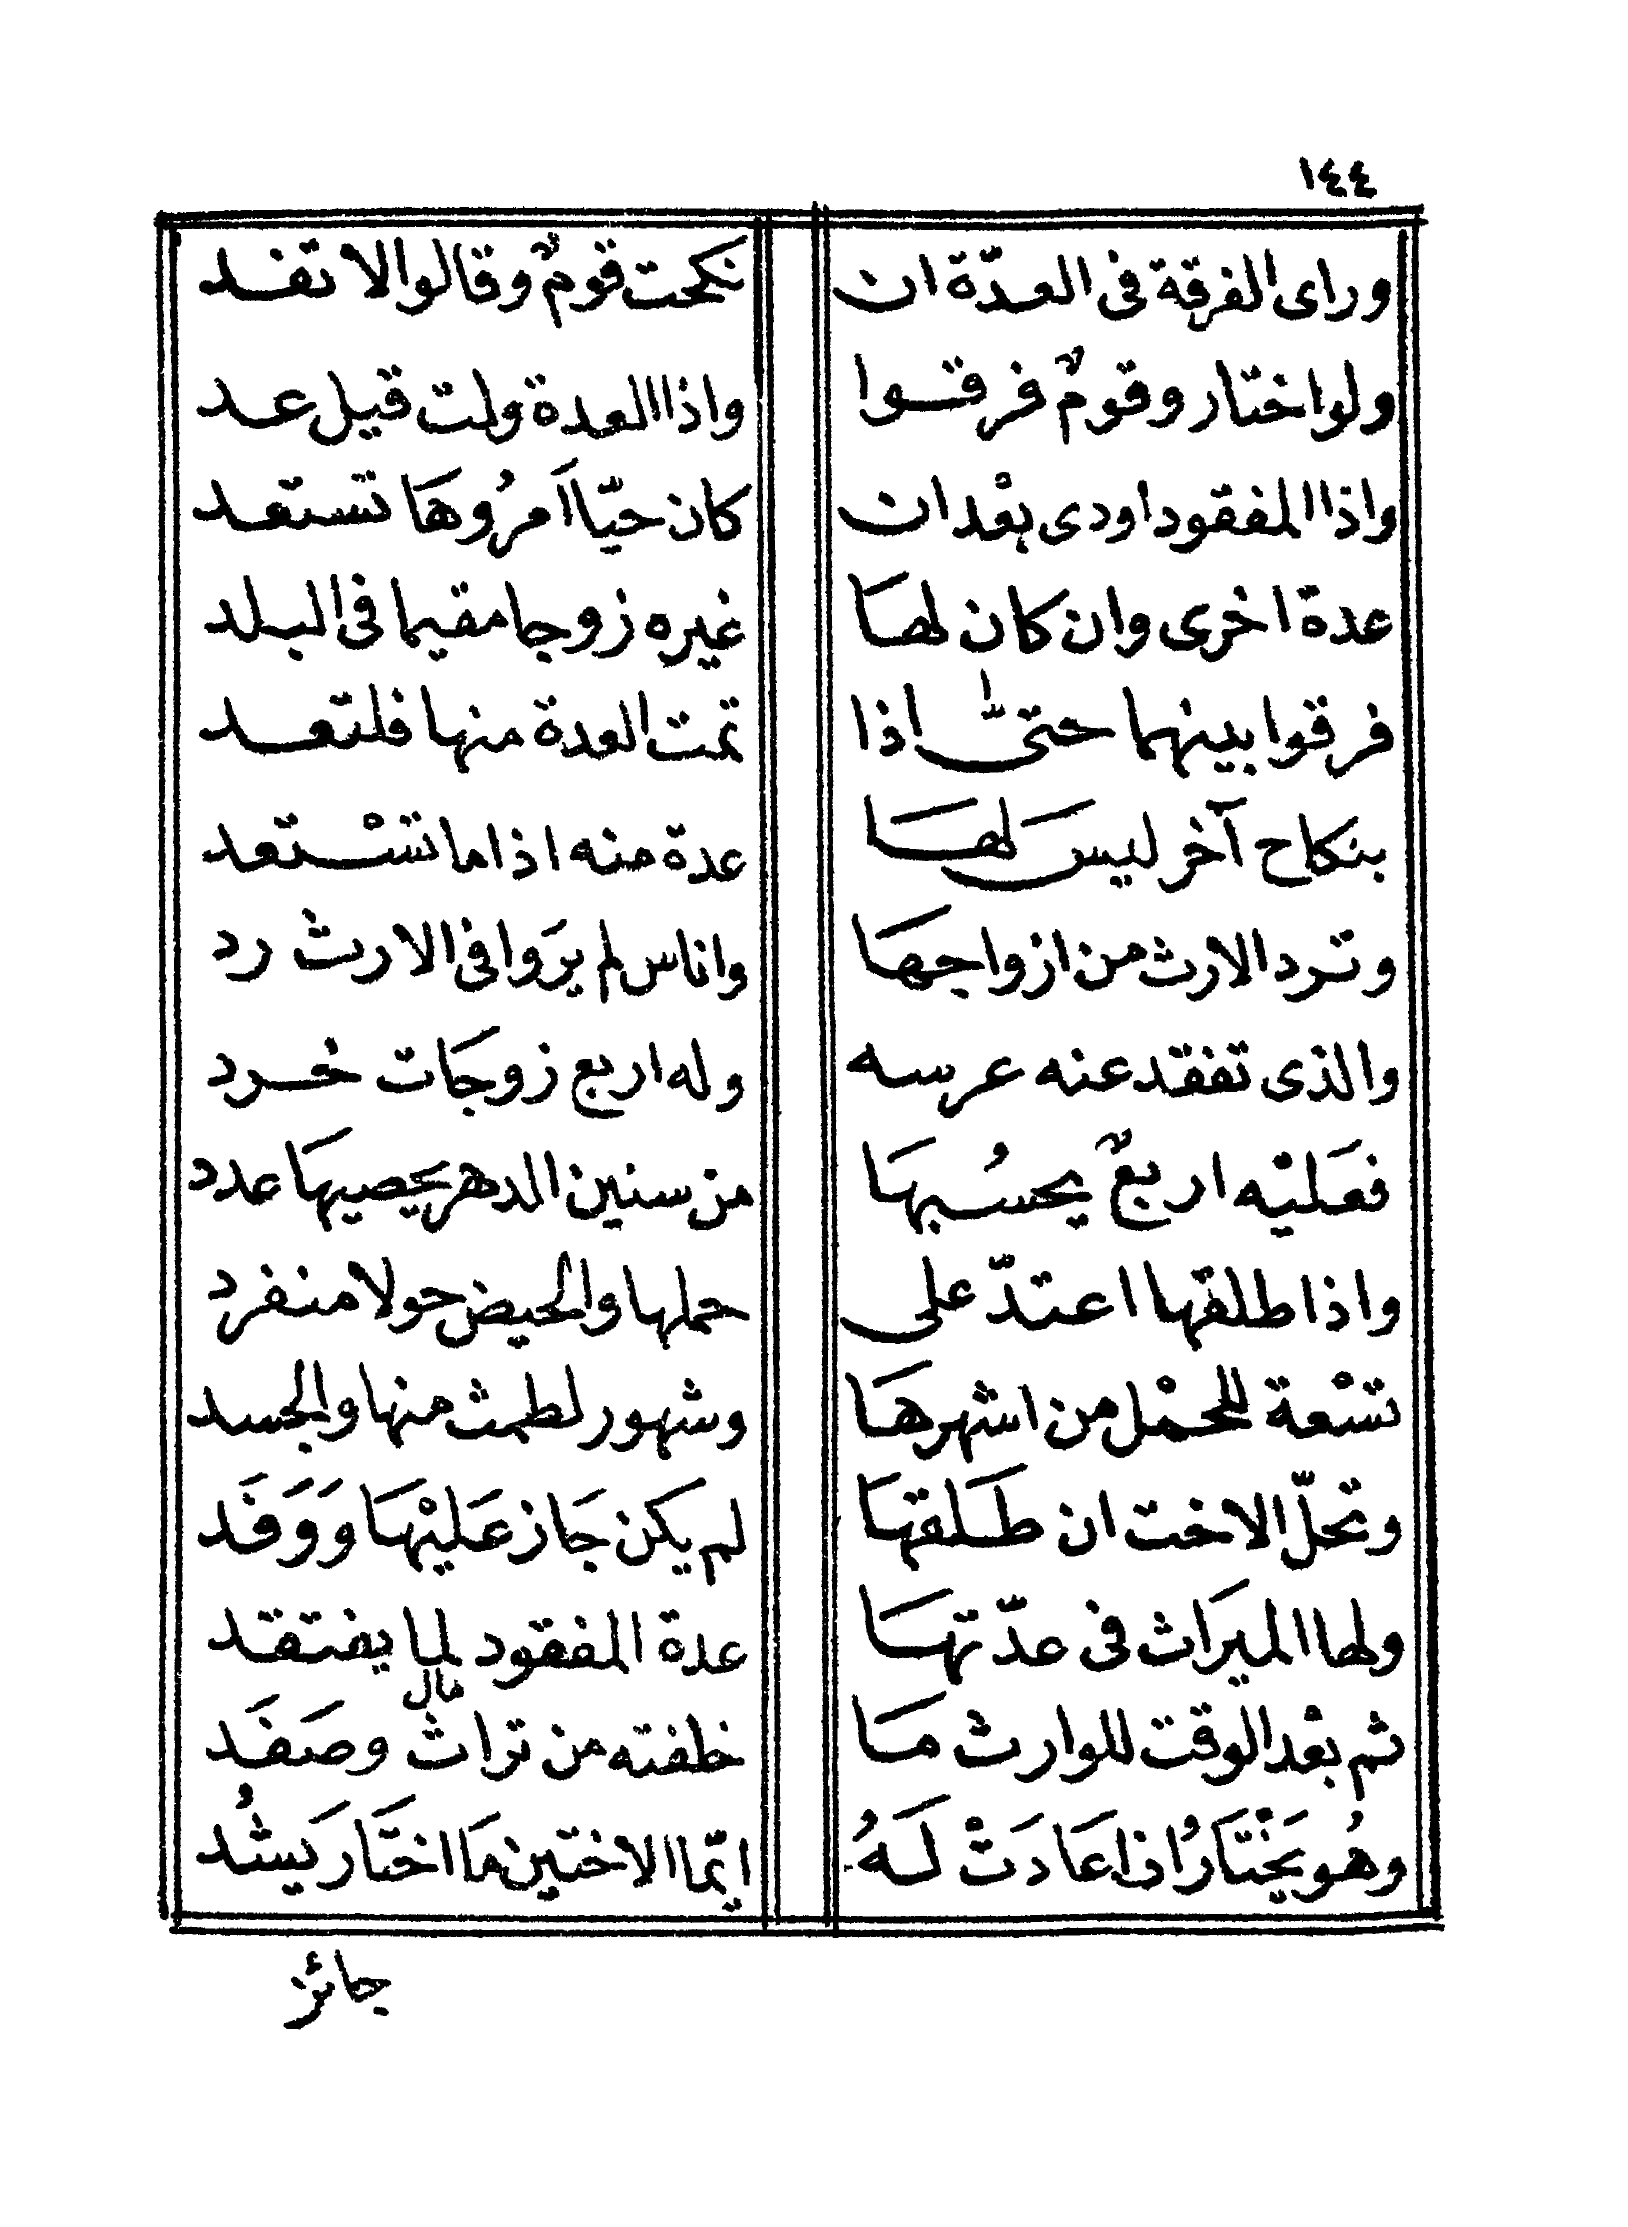 ١٤٤
وراى الفرقة فى العدّة ان نكحت قومٌ وقالوا لا تفد
ولو اختار وقومٌ فرقوا واذا العدة ولت قيل عد
واذا المفقود اودى بعْد ان كان حيّا اَمرُوهَا تستعد
عدة اخرى وان كان لهَا غيره زوجا مقيما فى البلد
فرقوا بينهما حتىّٰ اذا تمت العدة منها فلتعد
بنكاح آخر ليسَ لهَا عدة منه اذا ما تسْتعد
وترد الارث من ازواجهَا واناس لم يرَوا فى الارث رد
والذى تفقد عنه عرسه وله اربع زوجَات خُرد
فعَليْه اربعٌ يحسُبهَا من سنين الدهر يحصيهَا عدد
واذا طلقها اعتدّ على حملها والحيض حولا منفرد
تسْعة للحمْل من اشهرهَا وشهور لطمث منها والجسد
وتحلّ الاخت ان طَلقهَا لم يكن جَاز عَليْهَا وَوَفَد
ولها الميرَاث فى عدّتهَا عدة المفقود لما يفتقد
ثم بعْد الوقت للوارث مَا خلفته من تراث مال وصَفَد
وهُو يَخْتَارُ اذا عَادَتْ لَهُ ايّما الاختين مَا اختَار يَسُد
جائز